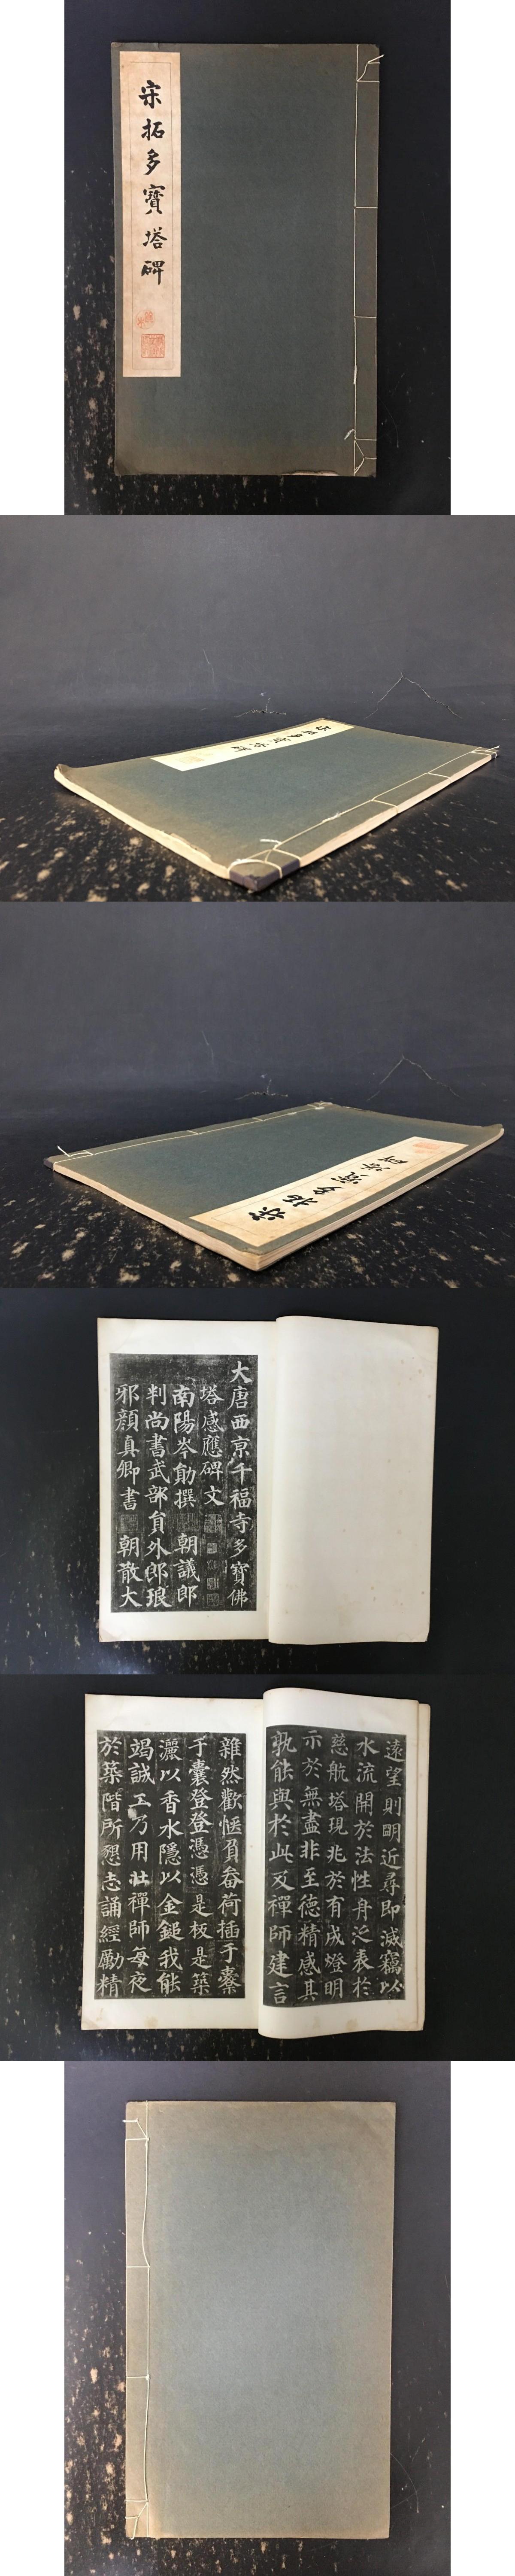 宋拓多寶塔碑
宋拓多寶塔碑
宋拓多寶塔碑
大唐西京千福寺多寶佛
塔感應碑文
南陽岑勛撰 朝議郎
判尚書武部員外郎琅
邪顏真卿書 朝散大
遠望則明近尋即滅竊以
水流開於法性舟泛表於
慈航塔現兆於有成燈明
示於無盡非至德精感其
孰能與於此及禪師建言
雜然歡愜負畚荷插于橐
于囊登登憑憑是板是築
灑以香水隱以金鎚我能
竭誠工乃用壯禪師每夜
於築階所懇志誦經勵精